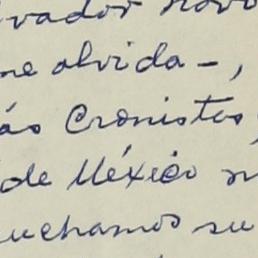 vador Novo
me olvida-,
ás Cronistas,
de México
uchamos su